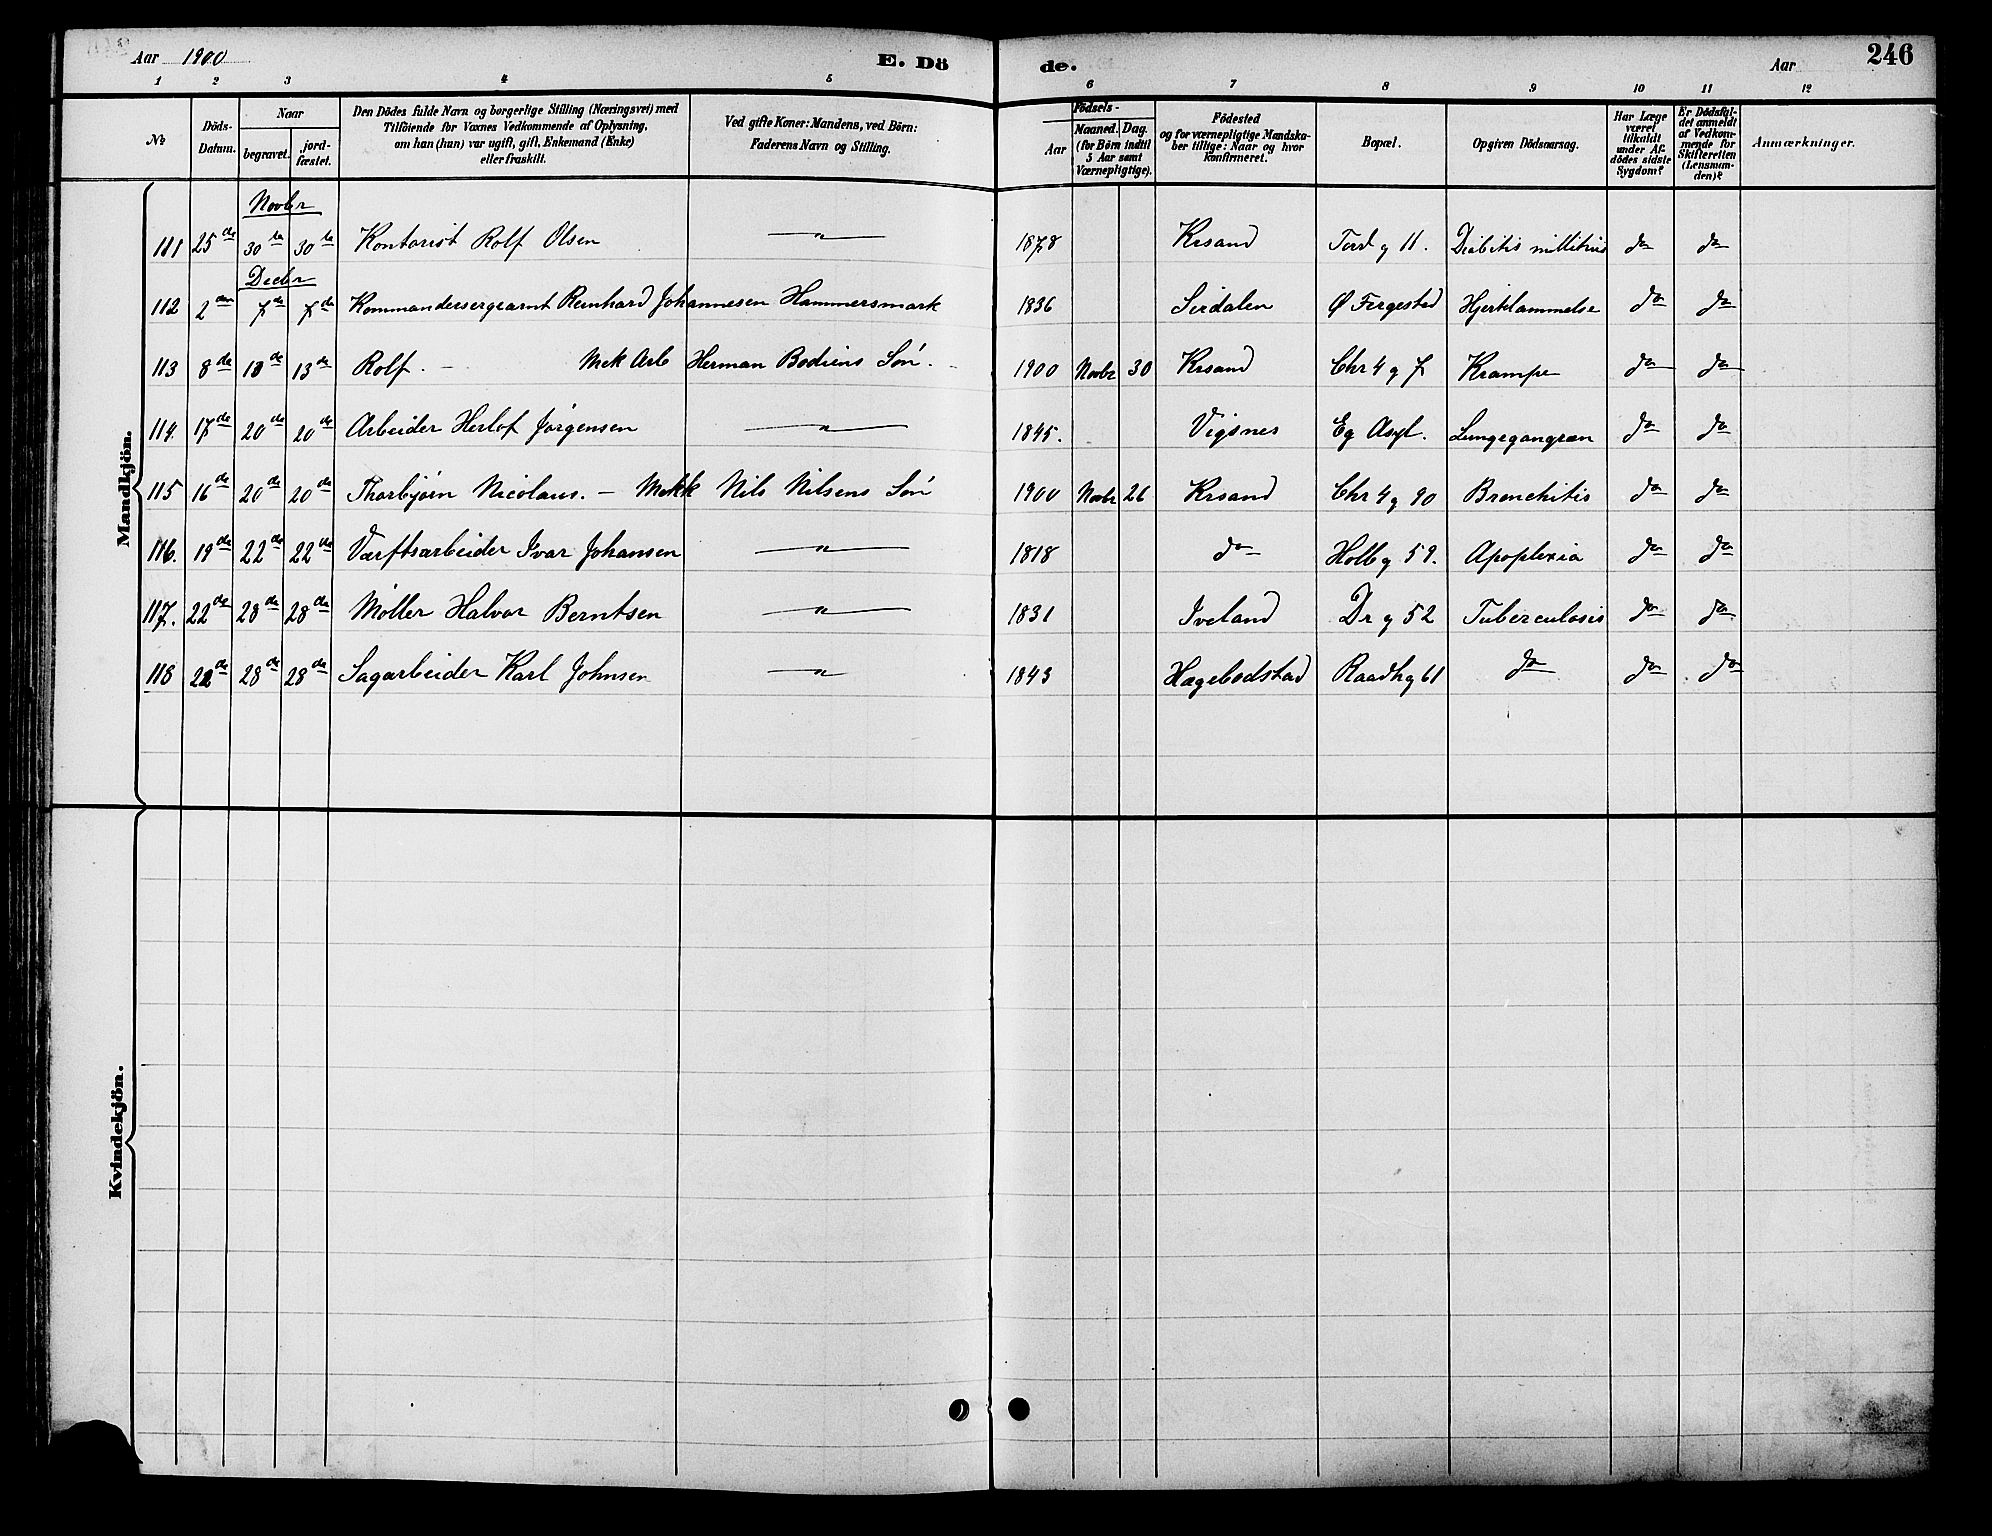 Aar 1900 E. Dö de. Aar 246
1 2 3 4 5 6 7 8 9 10 11 12
No Döds-Datum. Naar begravet. jord-fæstet. Den Dödes fulde Navn og borgerlige Stilling (Næringsvei) med Tilföiende for Voxnes Vedkommende af Oplysning, om han (hun) var ugift, gift, Enkemand (Enke) eller fraskilt. Ved gifte Koner: Mandens, ved Börn: Faderens Navn og Stilling. Födsels- Aar Maaned. Dag. (for Börn indtil 5 Aar samt Værnepligtige). Födested og for værnepligtige Mandska-ber tillige: Naar og hvor konfirmeret. Bopæl. Opgiven Dödsaarsag. Har Læge været tilkaldt under Af-dödes sidste Sygdom? Er Dödsfal-det anmeldt af Vedkom-mende for Skifteretten (Lensman-den)? Anmærkninger.
Mandkjön.
Novbr
111 25de 30te 30te Kontorist Rolf Olsen — " — 1878 Krsand Tord g 11. Diabitis millitus do do
Decbr
112 2den 7de 7de Kommandersergeamt Reinhard Johannesen Hammersmark 1836 Sirdalen Ø Fergested Hjertelammelse do do
113 8de 13de 13de Rolf. - Mek Arb Herman Bodiens Søn. 1900 Novbr 30 Krsand Chr 4 g 7 Krampe do do
114. 17de 20de 20de Arbeider Herlof Jørgensen — " — 1845. Vigsnes Eg Asyl. Lungegangræn do do
115 16de 20de 20de Thorbjørn Nicolaus. - Mekk Nils Nilsens Søn 1900 Novbr 26 Krsand Chr 4 g 90 Bronchitis do do
116. 19de 22de 22de Værftsarbeider Ivar Johansen — " — 1818 do Holb g 59. Apoplexia do do
117. 22de 28de 28de Møller Halvor Berntsen — " — 1831 Iveland Dr g 52 Tuberculosis do do
118 22de 28de 28de Sagarbeider Karl Johnsen — " — 1843 Hægebodstad Raadhg 61 do do do
Kvindekjön.